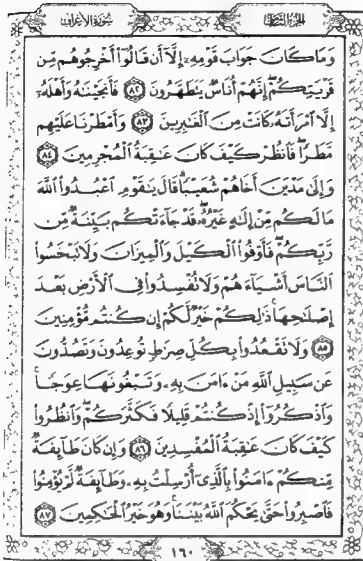 الجزء الثامن سورة الأعراف
وَمَا كَانَ جَوَابَ قَوْمِهِۦٓ إِلَّآ أَن قَالُوٓا۟ أَخْرِجُوهُم مِّن
قَرْيَتِكُمْ إِنَّهُمْ أُنَاسٌ يَتَطَهَّرُونَ ٨٢ فَأَنجَيْنَٰهُ وَأَهْلَهُۥٓ
إِلَّا ٱمْرَأَتَهُۥ كَانَتْ مِنَ ٱلْغَٰبِرِينَ ٨٣ وَأَمْطَرْنَا عَلَيْهِم
مَّطَرًا فَٱنظُرْ كَيْفَ كَانَ عَٰقِبَةُ ٱلْمُجْرِمِينَ ٨٤
وَإِلَىٰ مَدْيَنَ أَخَاهُمْ شُعَيْبًا قَالَ يَٰقَوْمِ ٱعْبُدُوا۟ ٱللَّهَ
مَا لَكُم مِّنْ إِلَٰهٍ غَيْرُهُۥ قَدْ جَآءَتْكُم بَيِّنَةٌ مِّن
رَّبِّكُمْ فَأَوْفُوا۟ ٱلْكَيْلَ وَٱلْمِيزَانَ وَلَا تَبْخَسُوا۟
ٱلنَّاسَ أَشْيَآءَهُمْ وَلَا تُفْسِدُوا۟ فِى ٱلْأَرْضِ بَعْدَ
إِصْلَٰحِهَا ذَٰلِكُمْ خَيْرٌ لَّكُمْ إِن كُنتُم مُّؤْمِنِينَ
٨٥ وَلَا تَقْعُدُوا۟ بِكُلِّ صِرَٰطٍ تُوعِدُونَ وَتَصُدُّونَ
عَن سَبِيلِ ٱللَّهِ مَنْ ءَامَنَ بِهِۦ وَتَبْغُونَهَا عِوَجًا
وَٱذْكُرُوٓا۟ إِذْ كُنتُمْ قَلِيلًا فَكَثَّرَكُمْ وَٱنظُرُوا۟
كَيْفَ كَانَ عَٰقِبَةُ ٱلْمُفْسِدِينَ ٨٦ وَإِن كَانَ طَآئِفَةٌ
مِّنكُمْ ءَامَنُوا۟ بِٱلَّذِىٓ أُرْسِلْتُ بِهِۦ وَطَآئِفَةٌ لَّمْ يُؤْمِنُوا۟
فَٱصْبِرُوا۟ حَتَّىٰ يَحْكُمَ ٱللَّهُ بَيْنَنَا وَهُوَ خَيْرُ ٱلْحَٰكِمِينَ ٨٧
١٦٠